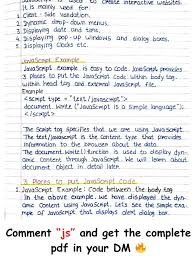 is used to create interactive websites.
It is mainly used for:
1. Client - Side validation.
2. Dynamic drop-down menus.
3. Displaying date and time.
4. Displaying pop-up windows and dialog boxes.
5. Displaying clocks etc.
JavaScript Example
JavaScript example is easy to code. JavaScript provides
3 places to put the JavaScript code within body tag,
within head tag and external JavaScript file.
Example
<script type = "text/javascript">
document.write("JavaScript is a simple language");
</script>
The Script tag specifies that we are using JavaScript.
The text/javascript is the content type that provides
information to the browser about the data.
The document.write() function is used to display dyn-
amic content through JavaScript. We will learn about
document object in detail later.
3 Places to put JavaScript code
1. JavaScript Example: Code between the body tag
In the above example, we have displayed the dynamic
Content using JavaScript. Lets see the Simple exa-
mple of JavaScript that displays alert dialog box.
Comment "js" and get the complete
pdf in your DM 🔥